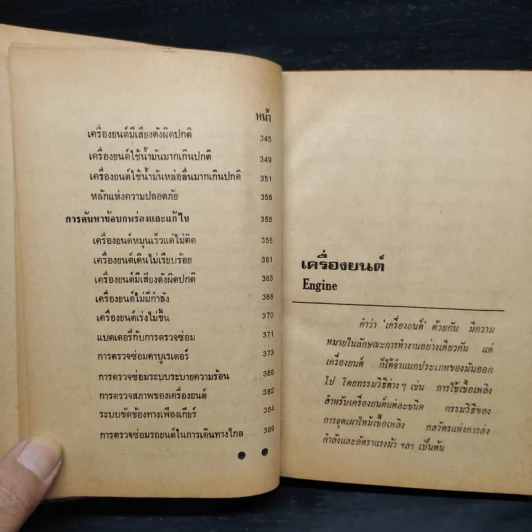 หน้า
เครื่องยนต์มีเสียงดังผิดปกติ 345
เครื่องยนต์ใช้น้ำมันมากเกินปกติ 349
เครื่องยนต์ใช้น้ำมันหล่อลื่นมากเกินปกติ 351
หลักแห่งความปลอดภัย 356
การค้นหาข้อบกพร่องและแก้ไข 358
เครื่องยนต์หมุนเร็วแต่ไม่ติด 358
เครื่องยนต์เดินไม่เรียบร้อย 361
เครื่องยนต์มีเสียงดังผิดปกติ 363
เครื่องยนต์ไม่มีกำลัง 366
เครื่องยนต์เร่งไม่ขึ้น 370
แบตเตอรี่กับการตรวจซ่อม 371
การตรวจซ่อมคาบูเรเตอร์ 373
การตรวจซ่อมระบบระบายความร้อน 365
การตรวจสภาพของเครื่องยนต์ 382
ระบบขัดข้องทางเฟืองเกียร์ 384
การตรวจซ่อมรถยนต์ในการเดินทางไกล 389
เครื่องยนต์
Engine
คำว่า 'เครื่องยนต์' ด้วยกัน มีความ
หมายในลักษณะการทำงานอย่างเดียวกัน แต่
เครื่องยนต์ ก็ได้จำแนกประเภทของมันออก
ไป โดยกรรมวิธีต่างๆ เช่น การใช้เชื้อเพลิง
สำหรับเครื่องยนต์แต่ละชนิด กรรมวิธีของ
การจุดเผาไหม้เชื้อเพลิง กลวัตรแห่งการส่ง
กำลังและอัตราแรงม้า ฯลฯ เป็นต้น